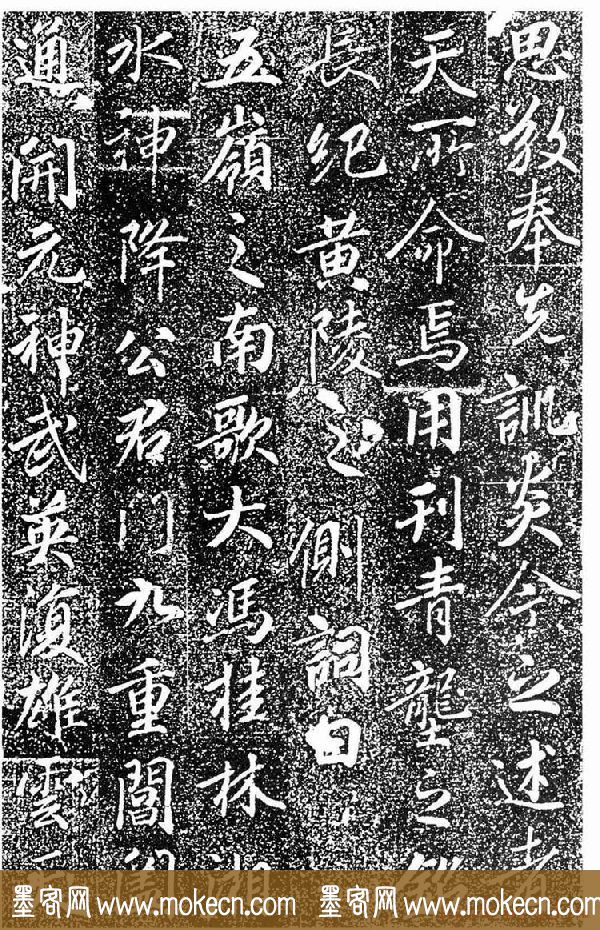 思敬奉先訓炎今之述者
天所命焉用刊青壟之
長紀黃陵之側詞曰
五嶺之南歌大馮桂林湘
水神降公君門九重閶闔
通開元神武英復雄雲
墨客网 www.mokecn.com 墨客网 www.mokecn.com